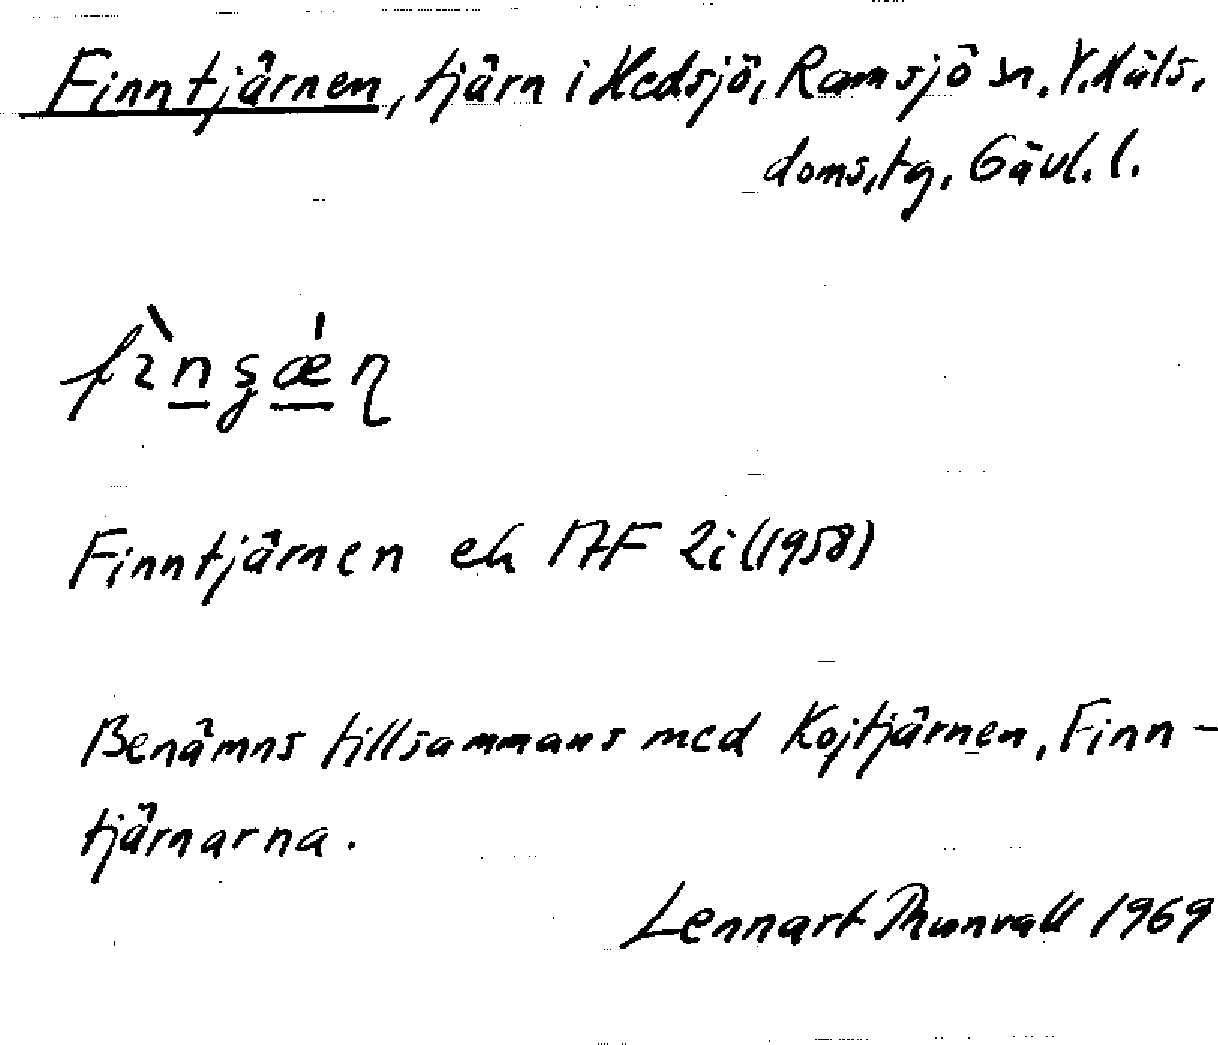 Finntjärnen, tjärn i Hedsjö, Ramsjö sn, V. Häls.
doms.tg, Gävl. l.
Finntjärnen ek 17F 2i (1958)
Benämns tillsammans med Kojtjärnen, Finn-
tjärnarna.
Lennart Thunvall 1969